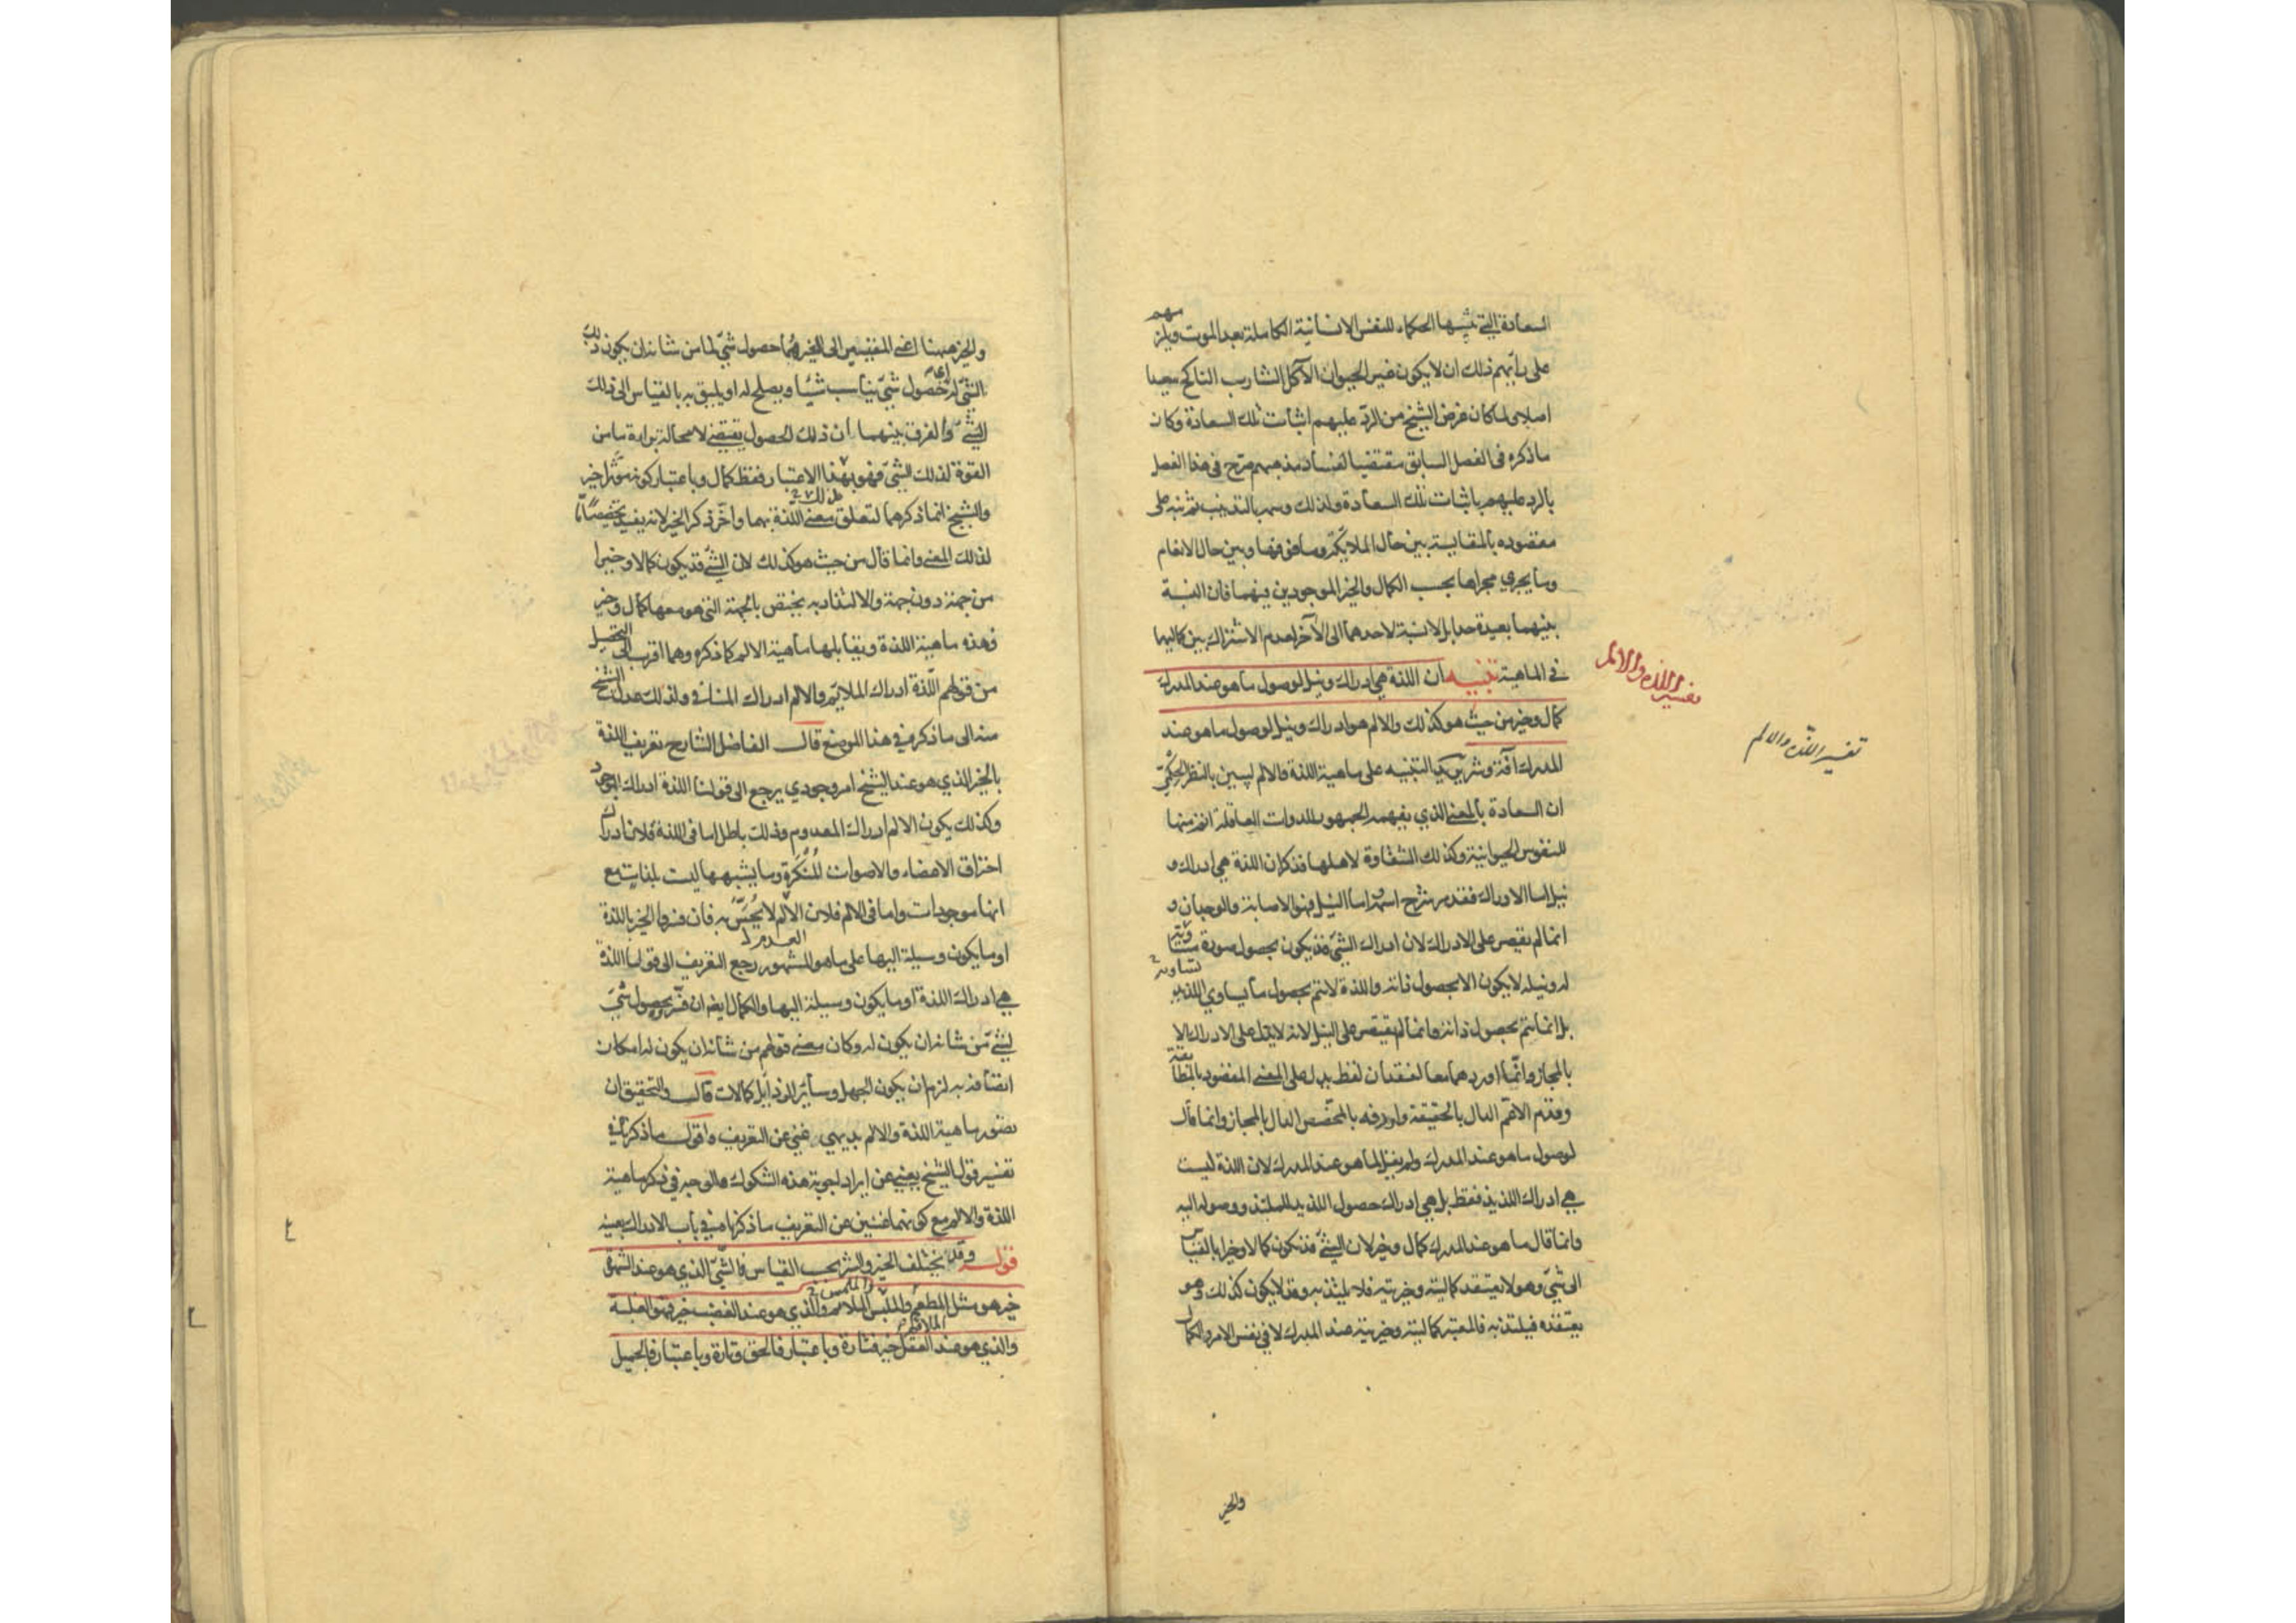 السعادة التي يثبتها الحكماء للنفس الانسانية الكاملة بعد الموت ويلزمهم
على رأيهم ذلك ان لا يكون غير الحيوان الآكل الشارب الناكح سعيدا
اصلا ولما كان غرض الشيخ من الرد عليهم اثبات تلك السعادة وكان
ما ذكره فى الفصل السابق مقتضيا لفساد مذهبهم صرح فى هذا الفصل
بالرد عليهم باثبات تلك السعادة ولذلك وسمه بالتذنيب ثم نبه على
مقصوده بالمقايسة بين حال الملائكة وما فوقها وبين حال الانعام
وما يجري مجراها بحسب الكمال والخير الموجودين فيهما فان النسبة
بينهما بعيدة جدا بل لا نسبة لاحدهما الى الآخر لعدم الاشتراك بين كماليهما
في الماهية تنبيه ان اللذة هي ادراك ونيل لوصول ما هو عند المدرك
كمال وخير من حيث هو كذلك والالم هو ادراك ونيل لوصول ما هو عند
المدرك آفة وشر يريد التنبيه على ماهية اللذة والالم ليبين بالنظر الحكمي
ان السعادة بالمعنى الذي يفهمه الجمهور للذوات العاقلة اتم منها
للنفوس الحيوانية وكذلك الشقاوة لاهلها فذكر ان اللذة هي ادراك و
نيل اما الادراك فقد مر شرح اسمه واما النيل فهو الاصابة والوجدان و
انما لم يقتصر على الادراك لان ادراك الشيء قد يكون بحصول صورة تساويه
له ونيله لا يكون الا بحصول ذاته واللذة لا تتم بحصول ما يساوي اللذيذ
بل انما تتم بحصول ذاته وانما لم يقتصر على النيل لانه لا يدل على الادراك الا
بالمجاز وانما اوردهما معا لفقدان لفظ يدل على المعنى المقصود بالمطابقة
وقدم الاعم الدال بالحقيقة واردفه بالمخصص الدال بالمجاز وانما قال
لوصول ما هو عند المدرك ولم يقل لما هو عند المدرك لان اللذة ليست
هي ادراك اللذيذ فقط بل هي ادراك حصول اللذيذ للملتذ ووصوله اليه
وانما قال ما هو عند المدرك كمال وخير لان الشيء قد يكون كمالا وخيرا بالقياس
الى شيء وهو لا يعتقد كماليته وخيريته فلا يلتذ به وقد لا يكون كذلك وهو
يعتقده فيلتذ به فالمعتبر كماليته وخيريته عند المدرك لا في نفس الامر والكمال
والخير
تفسير اللذه والالم
تفسير اللذه والالم
والخير ههنا اعني المقيسين الى الغير هما حصول شيء لما من شانه ان يكون ذلك
الشيء له اي حصول شيء يناسب شيئا ويصلح له او يليق به بالقياس الى ذلك
الشيء والفرق بينهما ان ذلك الحصول يقتضي لا محالة براءة ما من
القوة لذلك الشيء فهو بهذا الاعتبار فقط كمال وباعتبار كونه مؤثرا خير
والشيخ انما ذكرهما لتعلق معنى اللذة بهما واخر ذكر الخير لانه يفيد تخصيصا ما
لذلك المعنى وانما قال من حيث هو كذلك لان الشيء قد يكون كمالا وخيرا
من جهة دون جهة والالتذاذ به يختص بالجهة التي هو معها كمال وخير
فهذه ماهية اللذة ويقابلها ماهية الالم كما ذكره وهما اقرب الى التحصيل
من قولهم اللذة ادراك الملايم والالم ادراك المنافي ولذلك عدل الشيخ
منه الى ما ذكره في هذا الموضع قال الفاضل الشارح تعريف اللذة
بالخير الذي هو عند الشيخ امر وجودي يرجع الى قولنا اللذة ادراك الموجود
وكذلك يكون الالم ادراك المعدوم وذلك باطل اما فى اللذة فلان ادراك
احتراق الاعضاء والاصوات المنكرة وما يشبهها ليست بلذات مع
انها موجودات واما فى الالم فلان الالم لا يحس به فان فسروا الخير باللذة
العدم
او ما يكون وسيلة اليها على ما هو المشهور رجع التعريف الى قولنا اللذة
هي ادراك اللذة او ما يكون وسيلة اليها والكمال ايضا ان فسر بحصول شيء
لشيء من شانه ان يكون له وكان معنى قولهم من شانه ان يكون له امكان
اتصافه به لزم ان يكون الجهل وسائر الرذايل كمالات قال والتحقيق ان
تصور ماهية اللذة والالم بديهي غني عن التعريف واقول ما ذكرته في
تفسير قول الشيخ يغني عن ايراد اجوبة هذه الشكوك والوجه في ذكر ماهية
اللذة والالم مع كونهما غنيين عن التعريف ما ذكرناه في باب الادراك بعينه
قوله وقد يختلف الخير والشر بحسب القياس فالشيء الذي هو عند الشهوة
خير هو مثل المطعم والملبس الملايم والذي هو عند الغضب خير فهو الغلبة
والملمس
الملايم
والذي هو عند العقل خير فتارة وباعتبار فالحق وتارة وباعتبار فالجميل